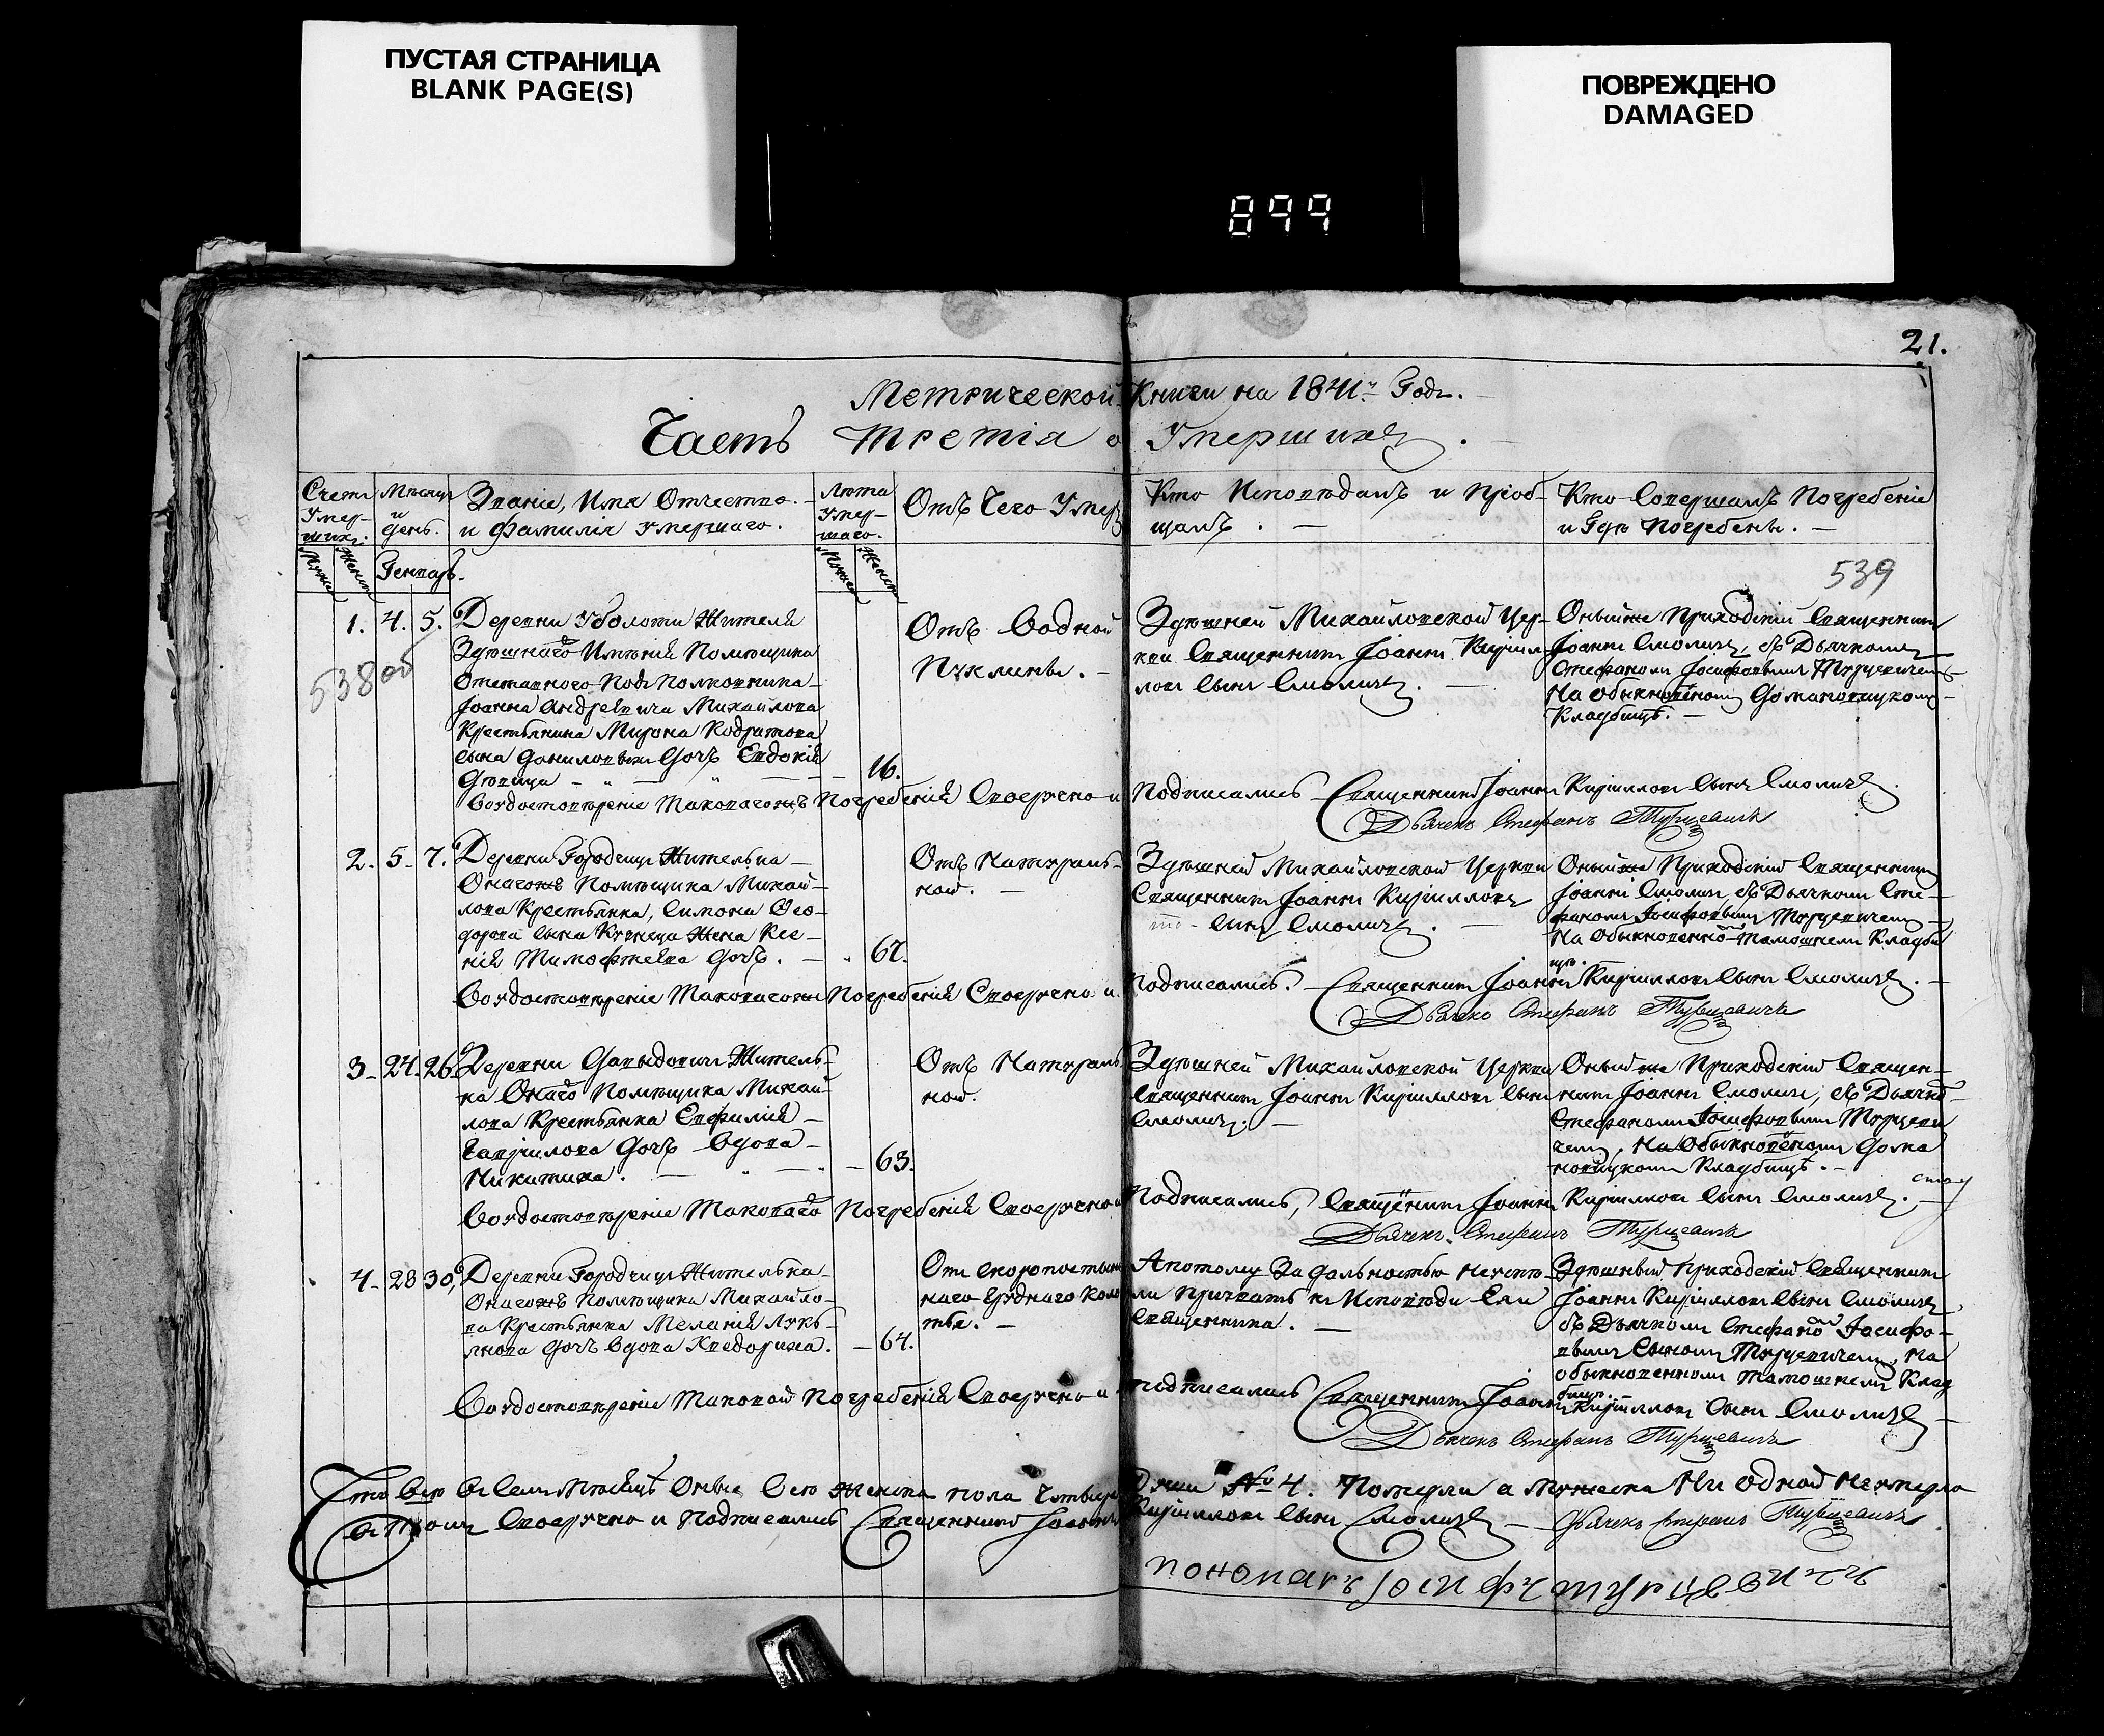 ПУСТАЯ СТРАНИЦА
BLANK PAGE(S)
ПОВРЕЖДЕНО
DAMAGED
899
21.
Метрической Книги на 1841й Годъ.
Часть третія о Умершихъ.
Счетъ Умершихъ.
Мѣсяцъ и день.
Званіе, Имя Отчество.
и Фамилія умершаго.
Лѣта Умершаго.
Отъ Чего Умеръ
Кто Исповѣдалъ и пріобщалъ.
Кто Совершалъ Погребеніе
и Гдѣ Погребены.
Генварь.
539
538 об
1. 4. 5.
Деревни Уболоти Жителя
Здѣшнаго Имѣнія Помѣщика
Отставного Подъ Полковника
Іоанна Андреевича Михайлова
Крестьянина Мирона Кодратова
сына Даниловъ Дочъ Евдокія
Дѣвица
16.
Отъ Водной
Пухлины.
Здѣшней Михайловской Цер-
кви Священникъ Іоаннъ Кирил-
ловъ сынъ Смоличъ.
Оныйже Приходскій Священникъ
Іоаннъ Смоличъ, съ Дьячкомъ
Стефаномъ Іосифовымъ Турцевичемъ
На Обыкновеномъ Домановицкомъ
Кладбищѣ.
Воудостовѣреніе Таковагожъ Погребенія Своеручно и Подписались Священникъ Іоаннъ Кирилловъ сынъ Смоличъ.
Дьячекъ Стефанъ Турцевичъ
2. 5. 7.
Деревни Городища Жителька
Онагожъ Помѣщика Михай-
лова Крестьянка, Симона Ѳео-
дорова сына Кузнеца Жена Ксе-
нія Тимофѣева Дочъ.
67.
Отъ Натураль-
ной.
Здѣшней Михайловской Церкви
Священникъ Іоаннъ Кирилловъ
сынъ Смоличъ.
Оныйже Приходскій Священникъ
Іоаннъ Смоличъ съ Дьячкомъ Сте-
фаномъ Іосифовымъ Турцевичемъ
На Обыкновенно Тамошнемъ Кладби
щѣ.
Воудостовѣреніе Таковагожъ Погребенія Своеручно и Подписались. Священникъ Іоаннъ Кирилловъ сынъ Смоличъ.
Дьячекъ Стефанъ Турцевичъ
3. 24. 26.
Деревни Давыдовичъ Житель-
ка Онаго Помѣщика Михай-
лова Крестьянка Евфимія
Гаврилова Дочъ Вдова
Никитиха.
63.
Отъ Натураль-
ной.
Здѣшней Михайловской Церкви
Священникъ Іоаннъ Кирилловъ сынъ
Смоличъ.
Оныйже Приходскій Священ-
никъ Іоаннъ Смоличъ, съ Дьячко
Стефаномъ Іосифовымъ Турцеви
чемъ, На Обыкновеномъ Дома
новицкомъ Кладбищѣ.
Воудостовѣреніе Таковаго Погребенія Своеручно и Подписались, Священникъ Іоаннъ Кирилловъ сынъ Смоличъ.
Дьячекъ Стефанъ Турцевичъ
4. 28 30,
Деревни Городчица Жителька
Онагожъ Помѣщика Михайло-
ва Крестьянка Меланія Лукь-
янова Дочъ Вдова Хведориха.
64.
Отъ Скоропостыж
наго Груднаго Коло
тья.
Апотому За дальностью Неуспѣ-
ли призвать къ Исповѣди Ели
Священника.
Здѣшный Приходскій Священникъ
Іоаннъ Кирилловъ сынъ Смоличъ
съ Дьячкомъ Стефано Іосифо-
вымъ Сыномъ Турцевичемъ, На
обыкновенномъ тамошнемъ Клад
бищѣ.
Воудостовѣреніе Таковой Погребенія Своеручно и подписались Священникъ Іоаннъ Кирилловъ сынъ Смоличъ
Дьячекъ Стефанъ Турцевичъ
Что Въ Семъ Мѣсяцѣ Оные Всю Женска пола Четыре Души № 4. Померли а Мужеска Ни одной Неумерло
Своеручно и Подписались Священникъ Іоаннъ Кирилловъ сынъ Смоличъ Дьячекъ Стефанъ Турцевичъ
пономаръ Іосифъ Турцевичъ